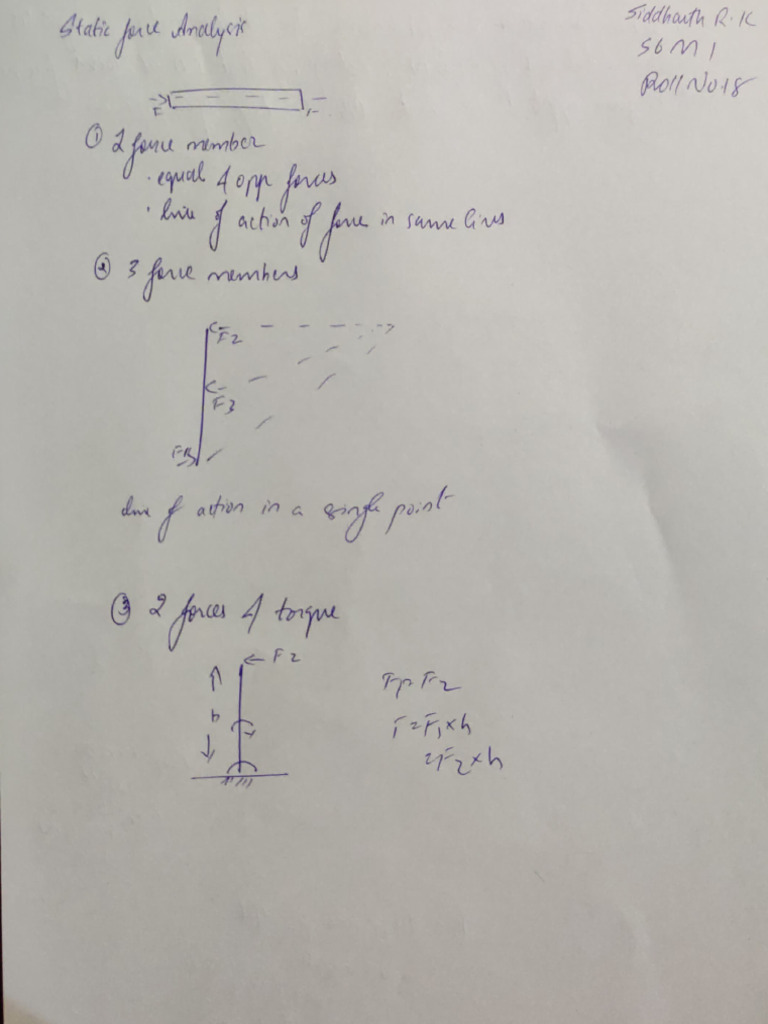 Static force Analysis
Siddharth R.K
S6 M 1
Roll No 18
F F
① 2 force member
· equal & opp forces
· line of action of force in same lines
② 3 force members
F2
F3
line of action in a single point
③ 2 forces & torque
F2
h
F1= F2
T=F1×h
=F2×h